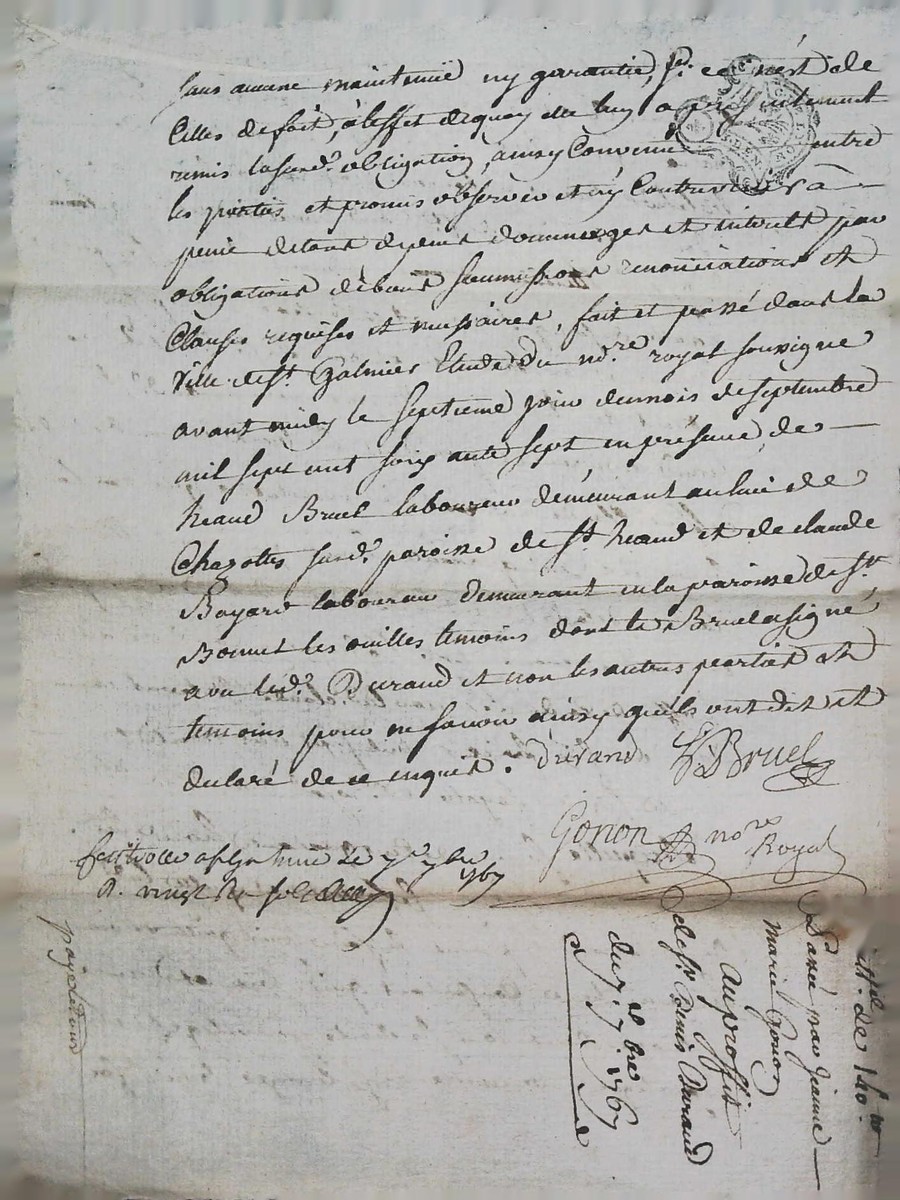 sans aucune maintenüe ny garantie, si ce n'est de
celles de fait, à l'effet de quoy de luy a presentement
remis lasusd.e obligation, ainsy Convenu entre
les parties et promis observer et n'y Contrevenir à
peine de tous depens dommages et interets par
obligations de biens soumissions renonciations et
Clauses requises et necessaires, fait et passé dans la
ville de St. Galmier Etude du no.re royal soussigné
avant midy le septieme jour du mois de septembre
mil sept cent soixante sept en presence de
heaud Bruel laboureur demeurant au lieu de
Chazottes susd. paroisse de St. heaud et de claude
Bayard laboureur demeurant en la paroisse de St.
Bonnet les ouilles temoins dont led. Bruel a signé
avec led. Durand et non les autres parties et
temoins pour ne savoir ainsy qu'ils ont dit et
declaré de ce enquis. Durand Bruel
Gonon no.re Royal
le 7.e 7bre 1767
R. vingt
ditte de 140.#
Passée par Jeanne
marie Gonon
au proffit
de Sr. Denis Durand
du 7. 7.bre 1767